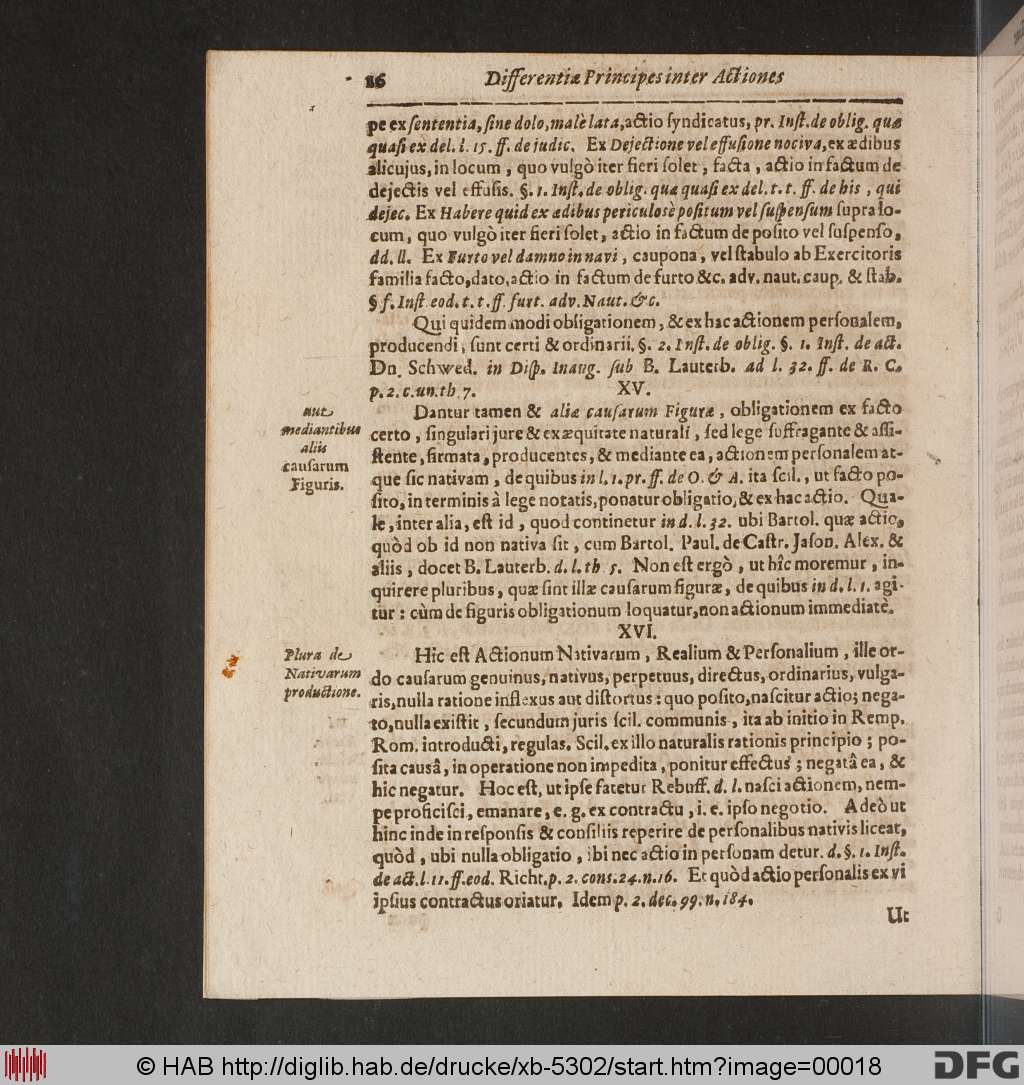 16 Differentiæ Principes inter Actiones
pe ex ſententia, ſine dolo, malè lata, actio ſyndicatus, pr. Inſt. de oblig. quæ
quaſi ex del. l. 15. ff. de judic. Ex Dejectione vel effuſione nociva, ex ædibus
alicujus, in locum, quo vulgò iter fieri ſolet, facta, actio in factum de
dejectis vel effuſis. §. 1. Inſt. de oblig. quæ quaſi ex del. t. t. ff. de his, qui
dejec. Ex Habere quid ex ædibus periculosè poſitum vel ſuſpenſum ſupra lo-
cum, quo vulgò iter fieri ſolet, actio in factum de poſito vel ſuſpenſo,
dd. ll. Ex Furto vel damno in navi, caupona, vel ſtabulo ab Exercitoris
familia facto, dato, actio in factum de furto &c. adv. naut. caup. & ſtab.
§ f. Inſt eod. t. t. ff. furt. adv. Naut. &c.
Qui quidem modi obligationem, & ex hac actionem perſonalem,
producendi, ſunt certi & ordinarii. §. 2. Inſt. de oblig. §. 1. Inſt. de act.
Dn. Schwed. in Diſp. Inaug. ſub B. Lauterb. ad l. 32. ff. de R. C.
p. 2. c. un. th. 7. XV.
aut
mediantibus
aliis
cauſarum
Figuris.
Dantur tamen & aliæ cauſarum Figuræ, obligationem ex facto
certo, ſingulari jure & ex æquitate naturali, ſed lege ſuffragante & aſſi-
ſtente, firmata, producentes, & mediante ea, actionem perſonalem at-
que ſic nativam, de quibus in l. 1. pr. ff. de O. & A. ita ſcil., ut facto po-
ſito, in terminis à lege notatis, ponatur obligatio, & ex hac actio. Qua-
le, inter alia, eſt id, quod continetur in d. l. 32. ubi Bartol. quæ actio,
quòd ob id non nativa ſit, cum Bartol. Paul. de Caſtr. Jaſon. Alex. &
aliis, docet B. Lauterb. d. l. th. 5. Non eſt ergò, ut hîc moremur, in-
quirere pluribus, quæ ſint illæ cauſarum figuræ, de quibus in d. l. 1. agi-
tur: cùm de figuris obligationum loquatur, non actionum immediatè.
XVI.
Plura de
Nativarum
productione.
Hic eſt Actionum Nativarum, Realium & Perſonalium, ille or-
do cauſarum genuinus, nativus, perpetuus, directus, ordinarius, vulga-
ris, nulla ratione inflexus aut diſtortus: quo poſito, naſcitur actio; nega-
to, nulla exiſtit, ſecundum juris ſcil. communis, ita ab initio in Remp.
Rom. introducti, regulas. Scil. ex illo naturalis rationis principio; po-
ſita causâ, in operatione non impedita, ponitur effectus; negatâ ea, &
hic negatur. Hoc eſt, ut ipſe fatetur Rebuff. d. l. naſci actionem, nem-
pe proficiſci, emanare, e. g. ex contractu, i. e. ipſo negotio. Adeò ut
hinc inde in reſponſis & conſiliis reperire de perſonalibus nativis liceat,
quòd, ubi nulla obligatio, ibi nec actio in perſonam detur. d. §. 1. Inſt.
de act. l. 11. ff. eod. Richt. p. 2. cons. 24. n. 16. Et quòd actio perſonalis ex vi
ipſius contractus oriatur. Idem p. 2. dec. 99. n. 184.
Ut
© HAB http://diglib.hab.de/drucke/xb-5302/start.htm?image=00018
DFG